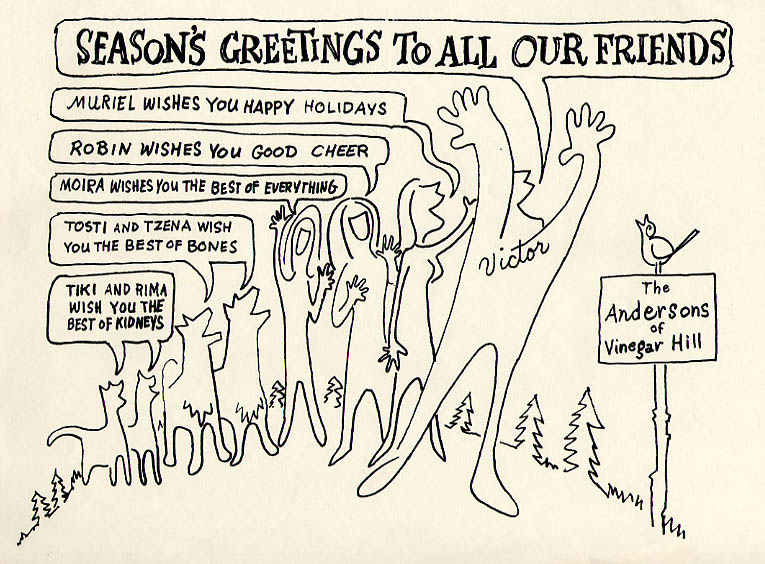 SEASON'S GREETINGS TO ALL OUR FRIENDS
MURIEL WISHES YOU HAPPY HOLIDAYS
ROBIN WISHES YOU GOOD CHEER
MOIRA WISHES YOU THE BEST OF EVERYTHING
TOSTI AND TZENA WISH
YOU THE BEST OF BONES
TIKI AND RIMA
WISH YOU THE
BEST OF KIDNEYS
Victor
The
Andersons
of
Vinegar Hill